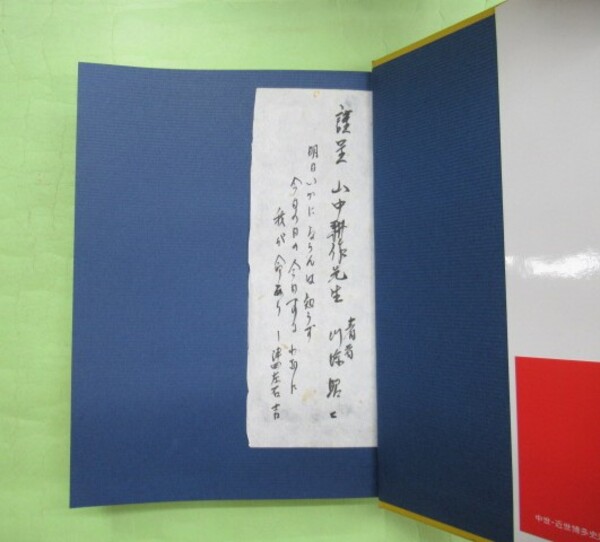 謹呈 山中耕作先生
著者 川添昭二
明日いかにならんは知らず
今日の日の今日するわざに
我が命あり ー津田左右吉
中世・近世博多史